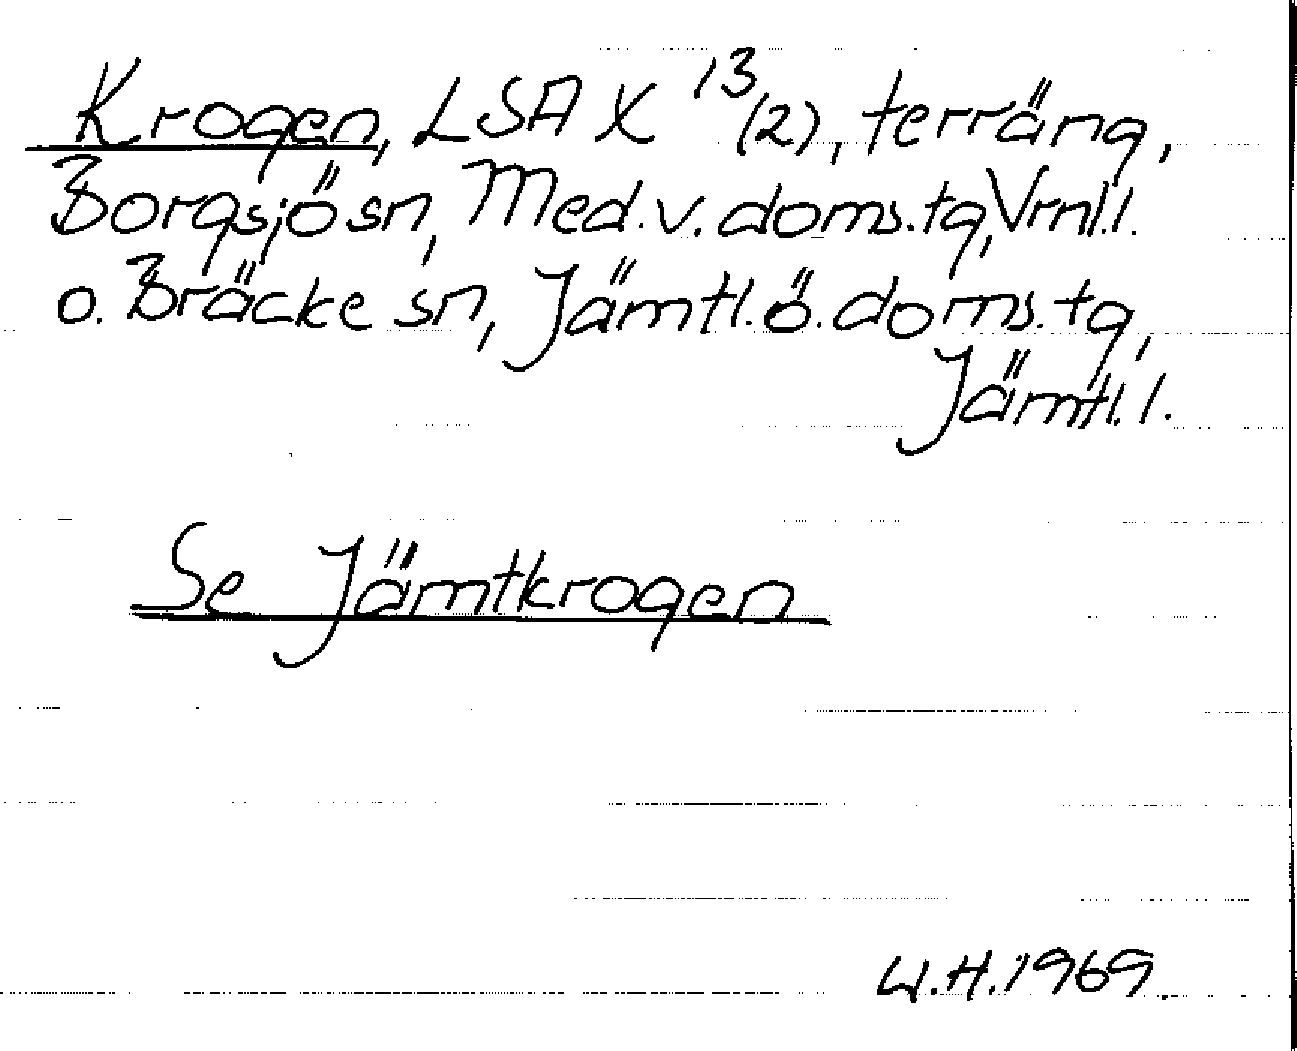 Krogen, LSA X 13 (2), terräng,
Borgsjö sn, Med. v. doms. tg, Vrnl. l.
o. Bräcke sn, Jämtl. ö. doms. tg,
Jämtl. l.
Se Jämtkrogen
W.H. 1969.